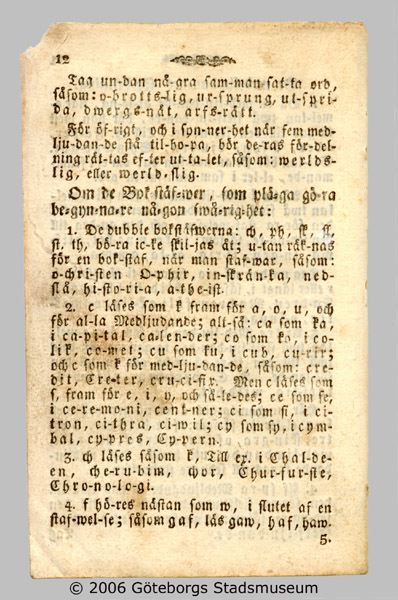 12
Tag un-dan nå-gra sam-man-sat-ta ord,
såsom: o-brotts-lig, ur-sprung, ut-spri-
da, dwergs-nät, arfs-rätt.
För öf-rigt, och i syn-ner-het när fem med-
lju-dan-de stå til-ho-pa, bör de-ras för-del-
ning rät-tas ef-ter ut-ta-let, såsom: werlds-
lig, eller werld-slig.
Om de Bok-stäf-wer, som plä-ga gö-ra
be-gyn-na-re nå-gon swå-rig-het:
1. De dubble bokstäfwerna: ch, ph, sk, sl,
st, th, bö-ra ic-ke skil-jas åt; u-tan räk-nas
för en bok-staf, när man staf-war, såsom:
o-chri-sten O-phir, in-skrän-ka, ned-
slå, hi-sto-ri-a, a-the-ist.
2. c läses som k fram för a, o, u, och
för al-la Medljudande; all-så: ca som ka,
i ca-pi-tal, ca-len-der; co som ko, i co-
lik, co-met; cu som ku, i cub, cu-rir;
och c som k för med-lju-dan-de, såsom: cre-
dit, Cre-ter, cru-ci-fix. Men c läses som
s, fram för e, i, y, och så-le-des; ce som se,
i ce-re-mo-ni, cent-ner; ci som si, i ci-
tron, ci-thra, ci-wil; cy som sy, i cym-
bal, cy-pres, Cy-pern.
3. ch läses såsom k, Till ex. i Chal-de-
en, che-ru-bim, chor, Chur-fur-ste,
Chro-no-lo-gi.
4. f hö-res nästan som w, i slutet af en
staf-wel-se; såsom gaf, läs gaw, haf, haw.
5.
© 2006 Göteborgs Stadsmuseum